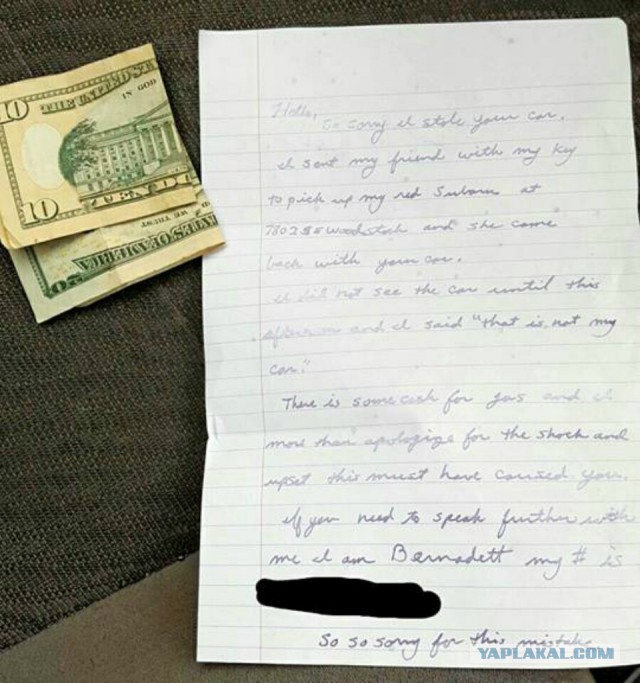 10
THE UNITED STA
IN GOD
TEN DO
10
WE TRUST
ES OF AMERICA
Hello,
So sorry I stole your car.
I sent my friend with my key
to pick up my red Subaru at
7802 SE Woodstock and she came
back with your car.
I did not see the car until this
and I said "that is not my
car."
There is some cash for gas and I
more than apologize for the shock and
upset this must have caused you.
If you need to speak further with
me I am Bernadett my # is
So so sorry for this mistake
YAPLAKAL.COM